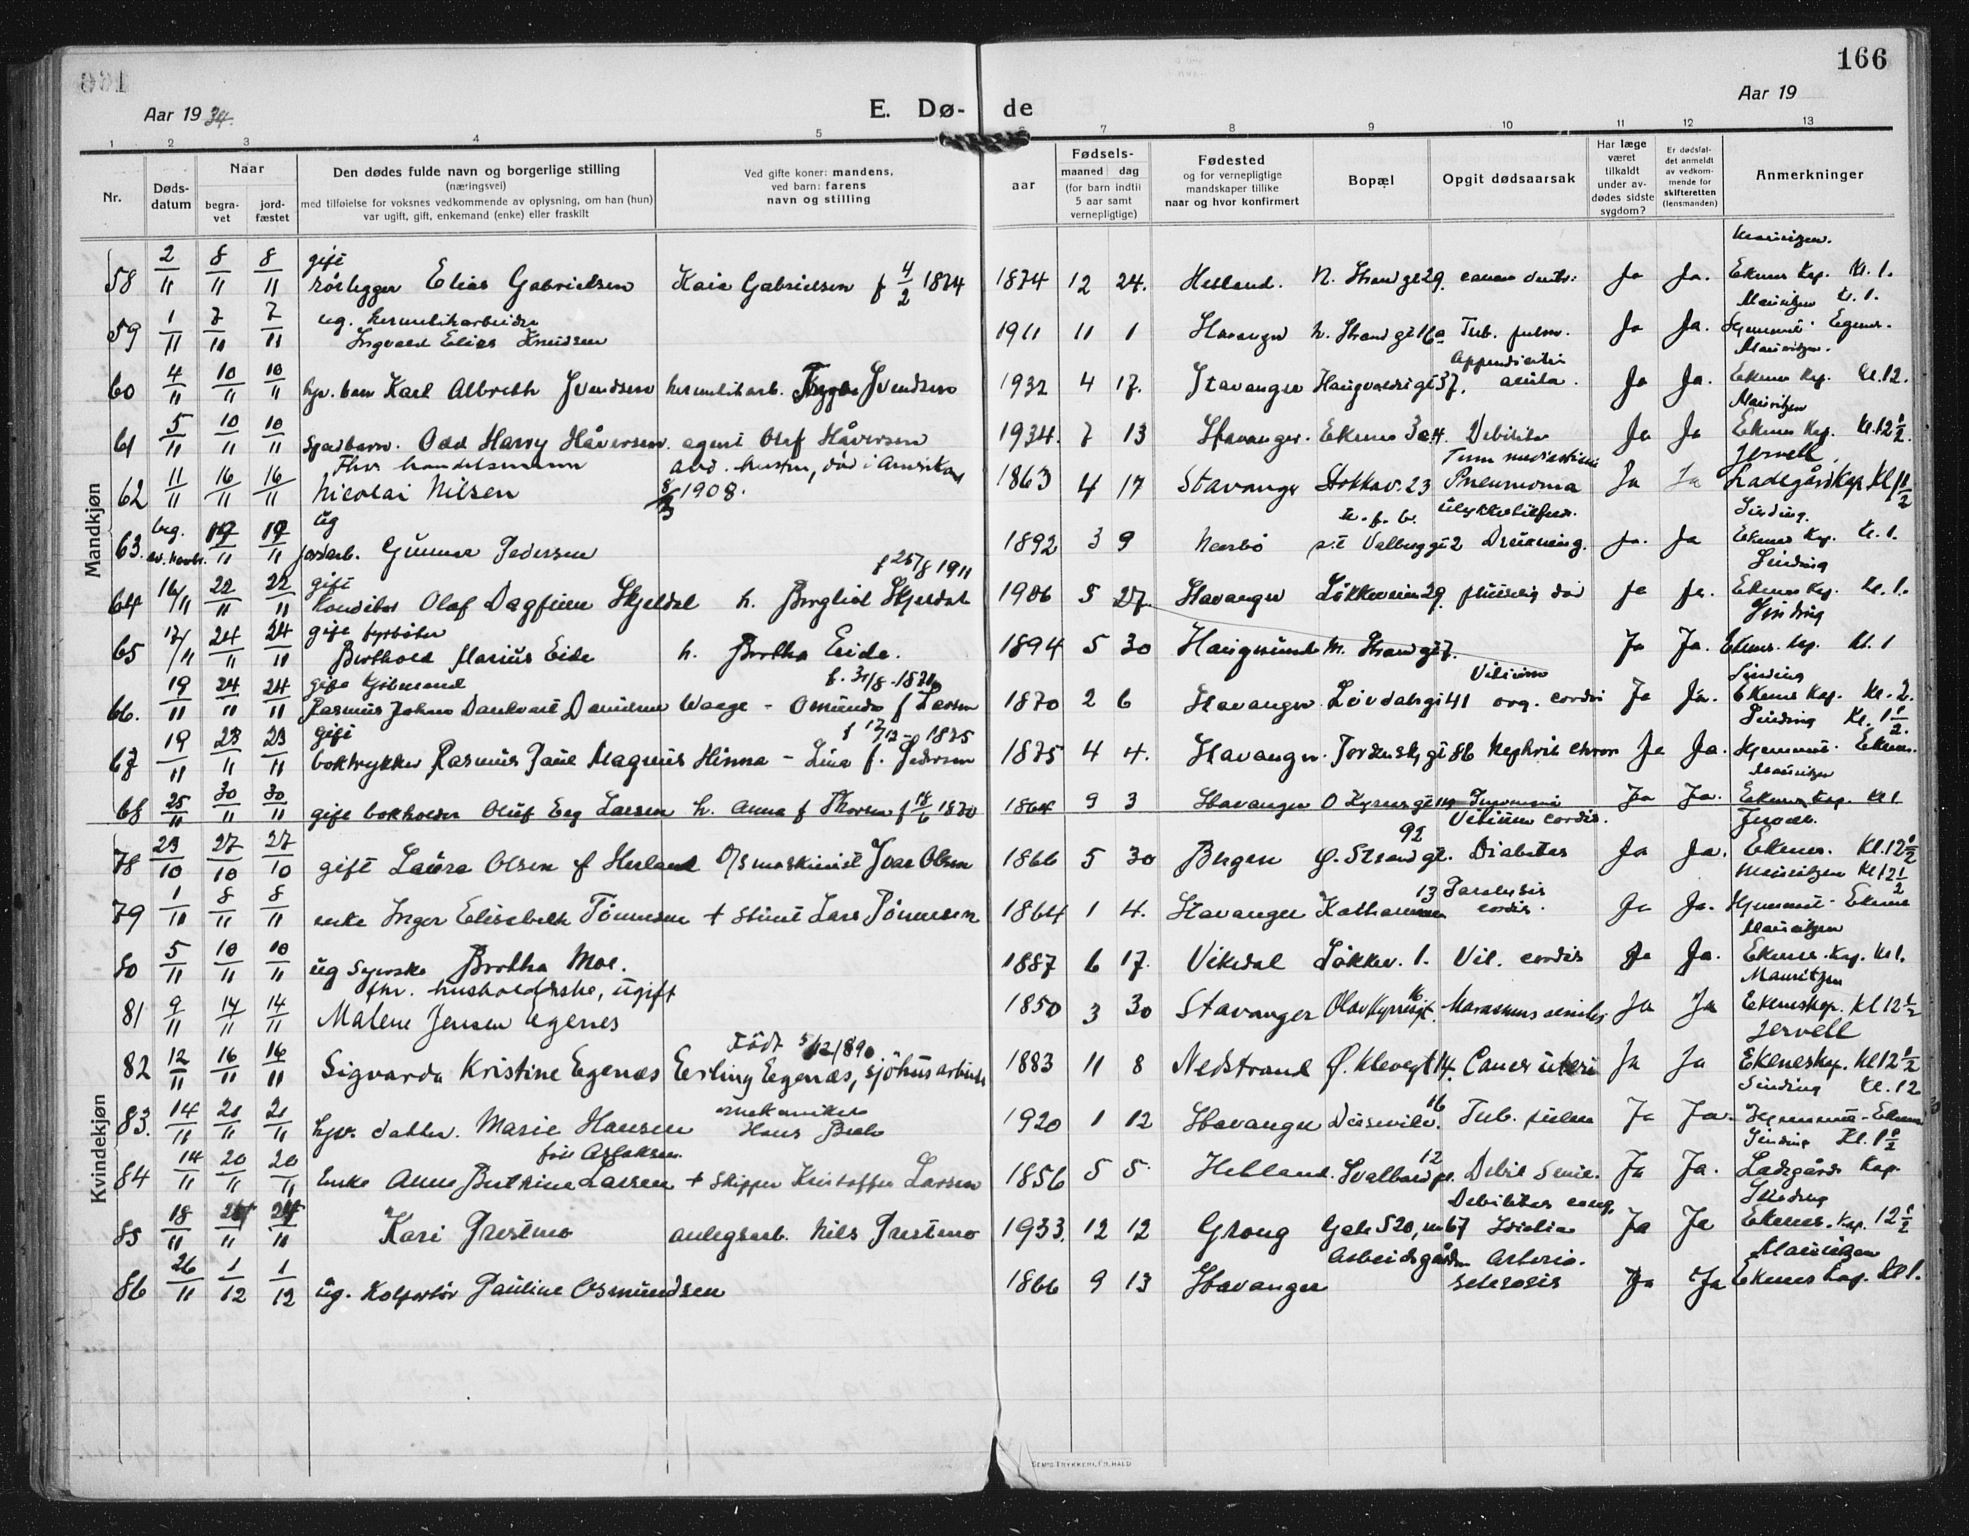 166
Aar 1934.
E. Dø- de
Aar 19
1 2 3 4 5 6 7 8 9 10 11 12 13
Nr.
Døds-
datum
Naar
begra-
vet
jord-
fæstet
Den dødes fulde navn og borgerlige stilling
(næringsvei)
med tilføielse for voksnes vedkommende av oplysning, om han (hun)
var ugift, gift, enkemand (enke) eller fraskilt
Ved gifte koner: mandens,
ved barn: farens
navn og stilling
Fødsels-
aar
maaned dag
(for barn indtil
5 aar samt
vernepligtige)
Fødested
og for vernepligtige
mandskaper tillike
naar og hvor konfirmert
Bopæl
Opgit dødsaarsak
Har læge
været
tilkaldt
under av-
dødes sidste
sygdom?
Er dødsfal-
det anmeldt
av vedkom-
mende for
skifteretten
(lensmanden)
Anmerkninger
Mandkjøn
gift
58 2/11 8/11 8/11 rørlegger Elias Gabrielsen Kaia Gabrielsen f 4/2 1874 1874 12 24. Helland. N. Strandgt 29. Ja Ja. Ekenes Kap. Kl. 1.
ug. hermetikarbeider Mauritzen Kl. 1.
59 1/11 7/11 7/11 Ingvald Elias Knudsen 1911 11 1 Stavanger N. Strandgt 16a Tub. pulm. Ja Ja. Hjemme - Egenes.
Appendicitis Mauritzen.
60 4/11 10/11 10/11 hjv. barn Karl Albreth Svendsen hermetikarb. Trygve Svendsen 1932 4 17. Stavanger Haugvaldsgt 37. acuta. Ja Ja. Ekenes Kap. Kl. 12.
Mauritzen
61 5/11 10/11 10/11 Spædbarn. Odd Harry Håversen agent Olaf Håversen 1934. 7 13 Stavanger. Ekenes 3 Debilitas Ja Ja Ekenes Kap. Kl. 12 1/2.
Fhv handelsmann avd. hustru, død i Amerika Jervell
62 11/11 16/11 16/11 Nicolai Nilsen 1908. 1863 4 17 Stavanger Stokkav. 23 Pneumonia Ja Ja Ladegårdskap Kl 1 1/2
ug Sinding.
63. 19/11 19/11 jordarb. Gunnar Pedersen 1892 3 9 Nærbø Valberggt 2 Drukning. Ja. Ja Ekenes Kap. Kl. 1.
gift f 25/8 1911 Sinding
64 16/11 22/11 22/11 Konditor Olaf Dagfinn Skjeldal h. Borghild Skjeldal 1906 5 27. Stavanger Løkkeveien 29. plutselig død Ja Ja. Ekenes Kap. Kl. 1.
gift fyrbøter Sinding
65 17/11 24/11 24/11 Berthold Marius Eide h. Bertha Eide. 1894 5 30 Haugesund N. Strandgt 7. Ja Ja. Ekenes Kap. Kl. 1
gift Vitium Sinding
66. 19/11 24/11 24/11 Rasmus Johan Dankvart Danielsen Waage - Osmunda f Larsen 1870 2 6 Stavanger Løvdahlsgt 41 org. cordis Ja Ja. Ekenes Kap. Kl. 2.
gift f 17/12 - 1875 Sinding Kl. 1 1/2
67 19/11 23/11 23/11 boktrykker Rasmus Paul Magnus Hinna - Lina f. Pedersen 1875 4 4. Stavanger. Tordenskj.gt 86 Nephrit chron Ja Ja. Hjemme - Ekenes.
Mauritzen
68 25/11 30/11 30/11 gift bokholder Oluf Eeg Larsen h. Anna f Thorsen 1870 1864 9 3 Stavanger O Kyrresgt Ja Ja. Ekenes Kap. Kl 1
Vitium cordis.
Kvindekjøn
92 Jervell.
78 23/10 27/10 27/10 gift Laura Olsen f Herland G/S maskinist Ivar Olsen 1866 5 30 Bergen Ø. Strandgt. Diabetes Ja Ja. Ekenes. Kl. 12 1/2
13 Paralysis Mauritzen Kl 12 1/2
79 1/10 8/11 8/11 enke Inger Elisabeth Tönnesen + Lars Tönnesen 1864 1 4. Stavanger cordis. Ja Ja. Hjemme - Ekenes
Mauritzen
80 5/11 10/11 10/11 ug Syerske Bertha Moe. 1887 6 17. Vikedal Løkkev. 1. Vit. cordis Ja Ja. Ekenes. Kap. Kl 1.
fhv. husholderske, ugift 16 Mauritzen
81 9/11 14/11 14/11 Malene Jensen Egenes 1850 3 30 Stavanger Olav Kyrresgt. Marasmus senilis Ja Ja Ekeneskap. Kl 12 1/2
Født 5/12 1890 Jervell
82 12/11 16/11 16/11 Sigvarda Kristine Egenæs Erling Egenæs, sjöhusarbeider 1883 11 8 Nedstrand Ø. Klevegt 14. Cancer uteri Ja Ja Ekeneskap. Kl 12 1/2
mekaniker 16 Sinding Kl. 12
83. 14/11 21/11 21/11 hjv. datter. Marie Hansen Hans 1920 1 12 Stavanger Dusevikv. Tub. pulm Ja Ja. Hjemme - Ekenes
født Aslaksen. 12 Sinding Kl. 1 1/2
84 14/11 20/11 20/11 Enke Anne Bertine Larsen + Skipper Kristoffer Larsen 1856 5 5. Helland. Svalbardgt. Debil. Senil. Ja Ja. Ladegårds Kap.
Debilitas cong. Sinding
85 18/11 24/11 24/11 Kari Prestmo anlegsarb. Nils Prestmo 1933. 12 12 Grong Gate 520, nr 67 Ja Ja Ekenes. Kap. 12 1/2
Arbeidsgården Arterio- Mauritzen
86 26/11 1/12 1/12 ug. Kolportør Pauline Osmundsen 1866 9 13 Stavanger sclerosis Ja Ja Ekenes Kap. Kl 1.
DEM'S TRYKKERI, FR. HALD